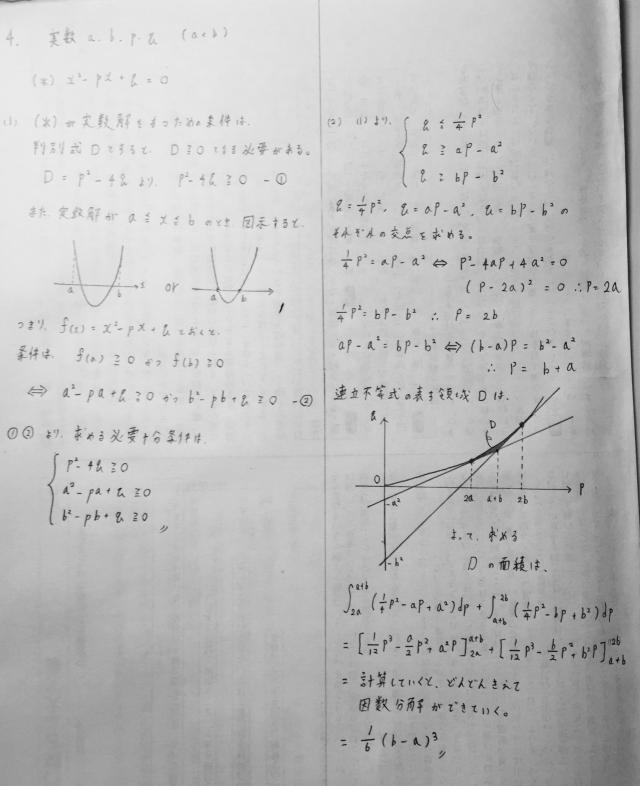 4. 実数 a, b, p, q (a<b)
(※) x²-px+q=0
(1) (※)が実数解をもつための条件は、
判別式Dとすると、D≧0である必要がある。
D=p²-4q より、p²-4q≧0 -①
また、実数解が a≦x≦b のとき 図示すると、
a b x or a b
つまり、f(x)=x²-px+q とおくと、
条件は、f(a)≧0 かつ f(b)≧0
⇔ a²-pa+q≧0 かつ b²-pb+q≧0 -②
①②より、求める必要十分条件は、
p²-4q≧0
a²-pa+q≧0
b²-pb+q≧0 〃
(2) (1)より、
q≦1/4p²
q≧ap-a²
q≧bp-b²
q=1/4p², q=ap-a², q=bp-b² の
それぞれの交点を求める。
1/4p²=ap-a² ⇔ p²-4ap+4a²=0
(p-2a)²=0 ∴p=2a
1/4p²=bp-b² ∴ p=2b
ap-a²=bp-b² ⇔ (b-a)p=b²-a²
∴ p=b+a
連立不等式の表す領域Dは、
q
D
O
2a a+b 2b p
-a²
-b²
よって、求める
Dの面積は、
∫_{2a}^{a+b}(1/4p²-ap+a²)dp+∫_{a+b}^{2b}(1/4p²-bp+b²)dp
=[1/12p³-a/2p²+a²p]_{2a}^{a+b}+[1/12p³-b/2p²+b²p]_{a+b}^{2b}
= 計算していくと、どんどんきえて
因数分解ができていく。
=1/6(b-a)³ 〃